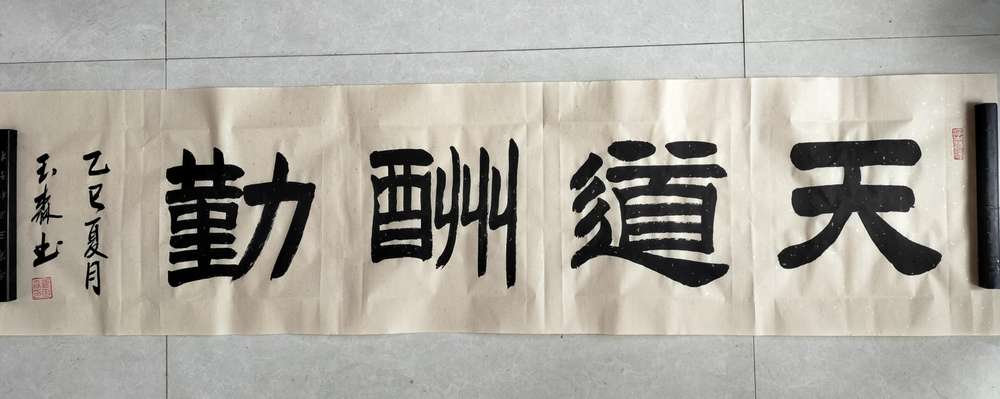 天道酬勤
乙巳夏月
玉森书